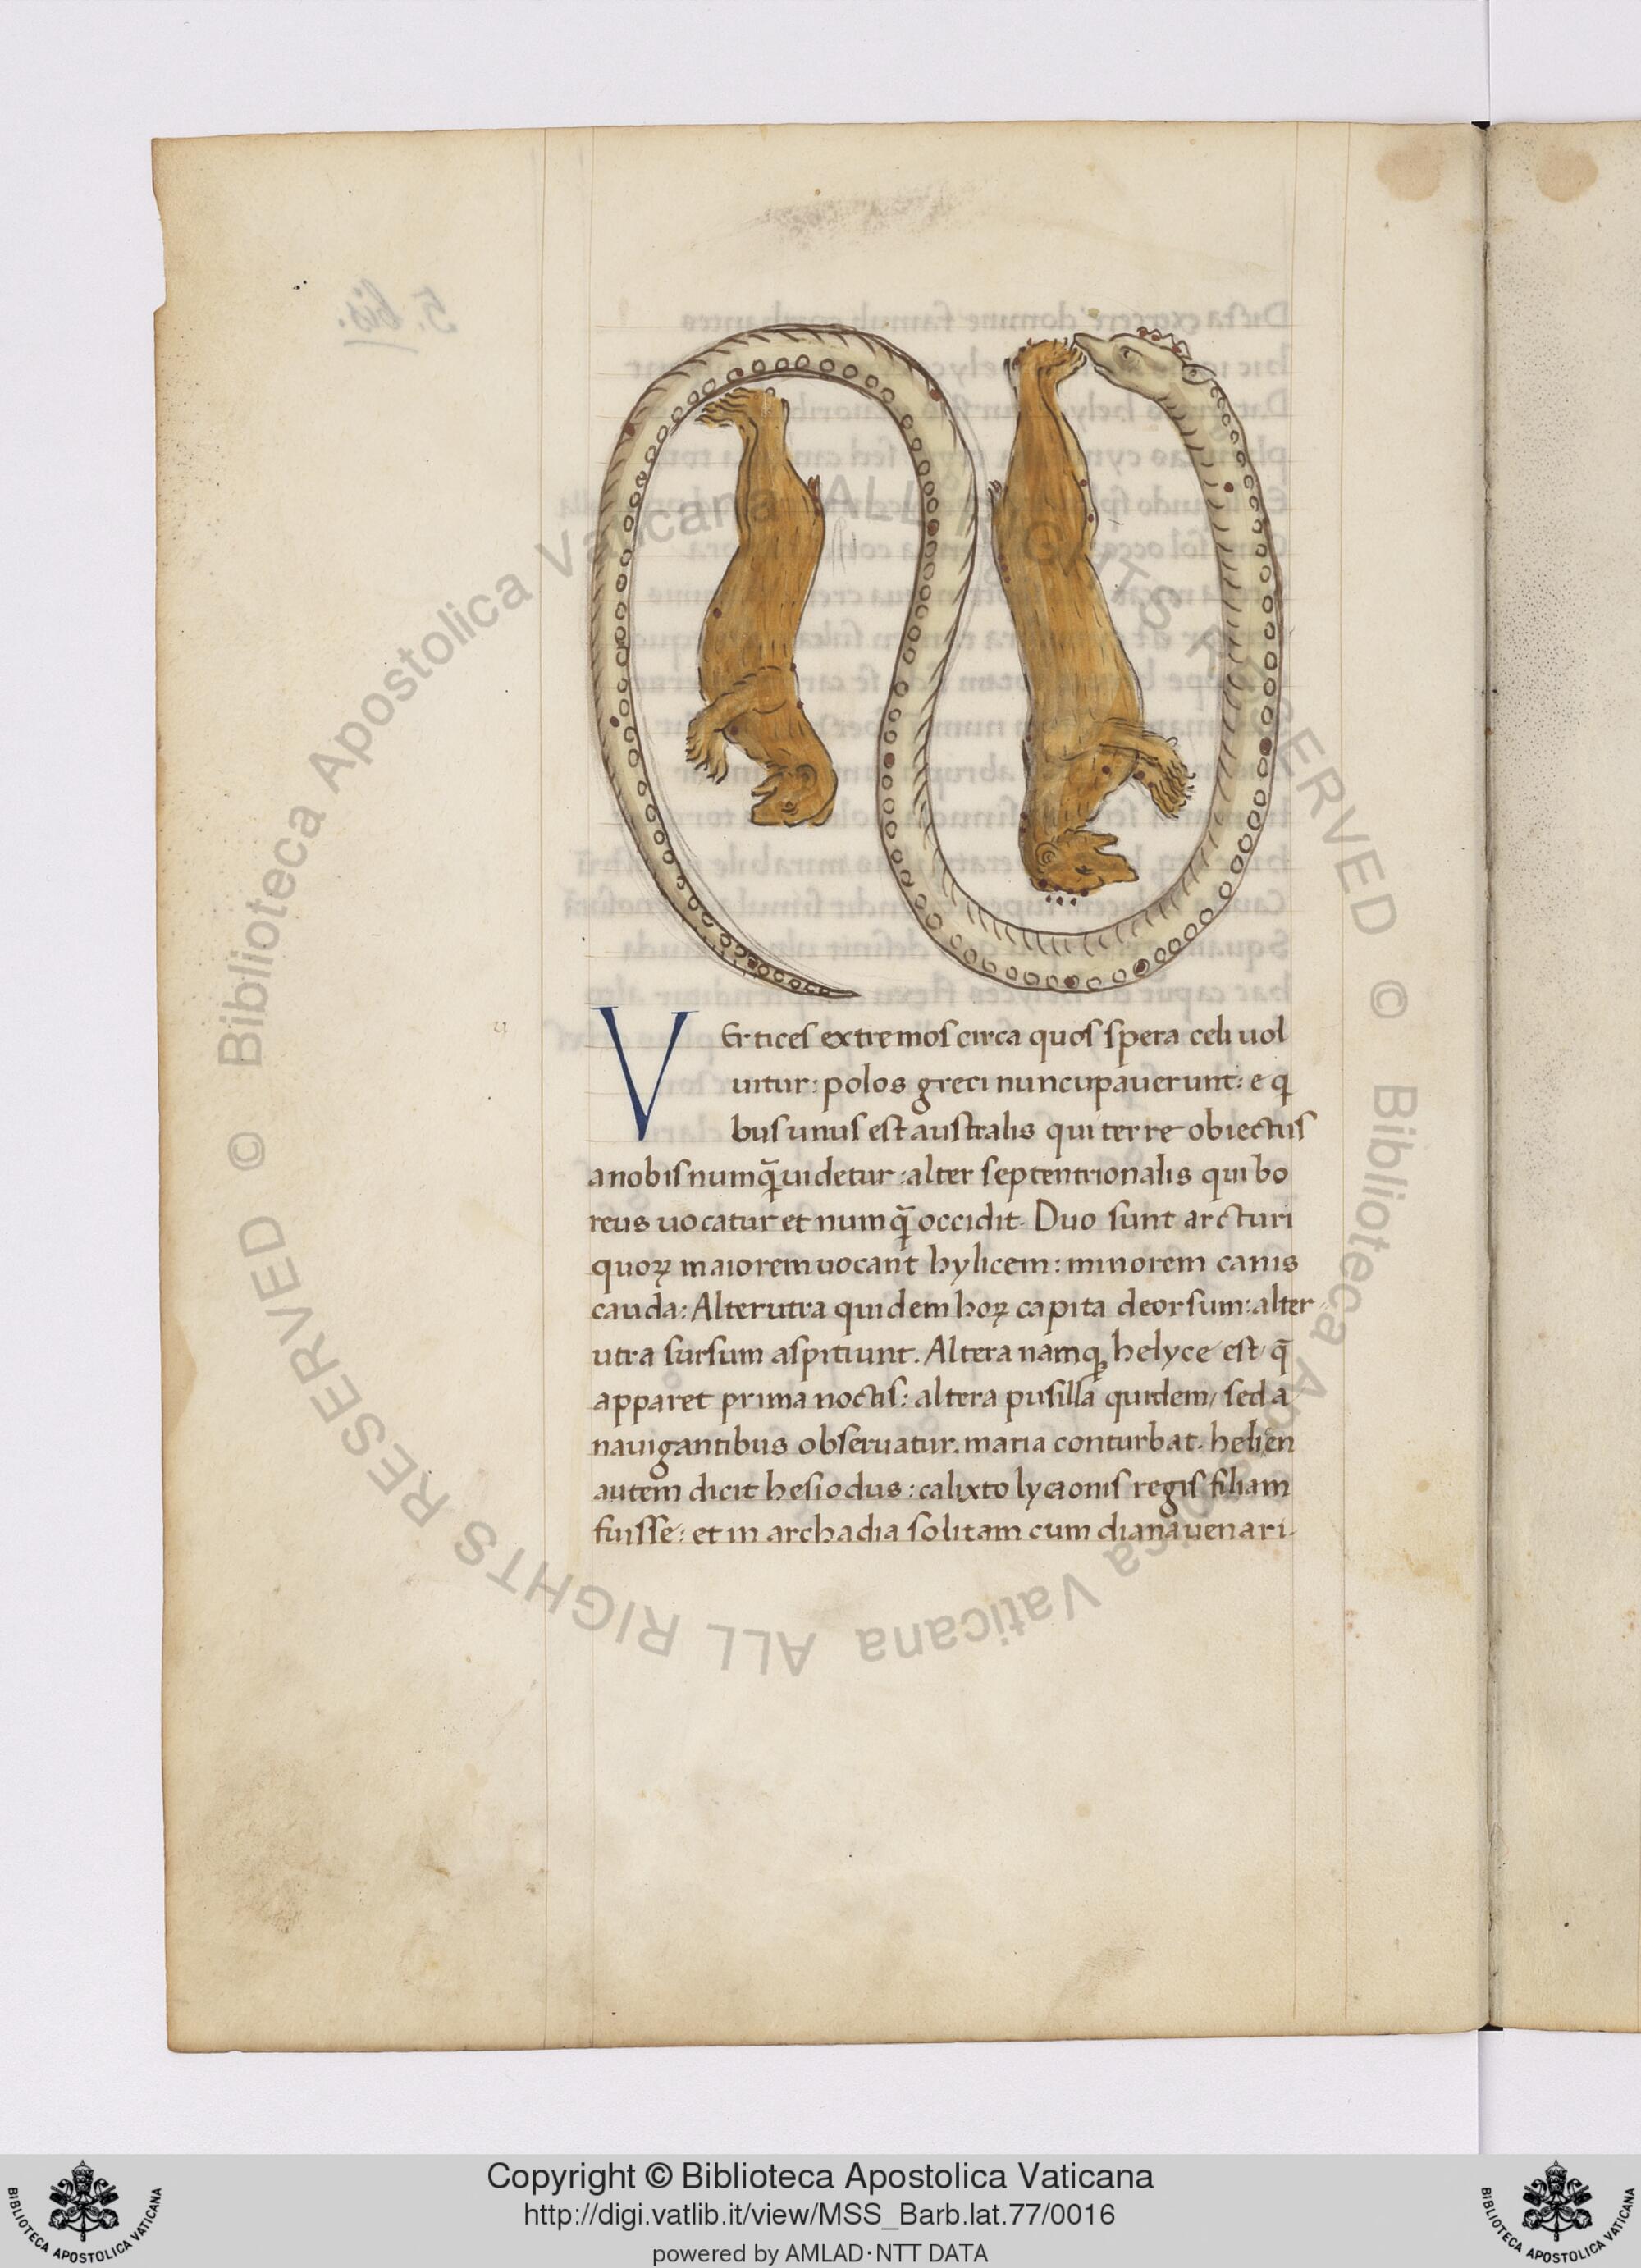 VErtices extremos circa quos spera celi uol
uitur: polos greci nuncupauerunt: e q
bus unus est australis qui terre obiectus
a nobis numq̄ uidetur: alter septentrionalis qui bo
reus uocatur et numq̄ occidit. Duo sunt arcturi
quoꝝ maiorem uocant hylicem: minorem canis
cauda: Alterutra quidem hoꝝ capita deorsum: alter
utra sursum aspitiunt. Altera namq̨ helyce est q̄
apparet prima noctis: altera pusilla quidem/ sed a
nauigantibus obseruatur. maria conturbat. helien
autem dicit hesiodus: calixto lycaonis regis filiam
fuisse: et in archadia solitam cum diana uenari.
Copyright © Biblioteca Apostolica Vaticana
http://digi.vatlib.it/view/MSS_Barb.lat.77/0016
powered by AMLAD·NTT DATA
BIBLIOTECA APOSTOLICA VATICANA
BIBLIOTECA APOSTOLICA VATICANA
© Biblioteca Apostolica Vaticana ALL RIGHTS RESERVED © Biblioteca Apostolica Vaticana ALL RIGHTS RESERVED